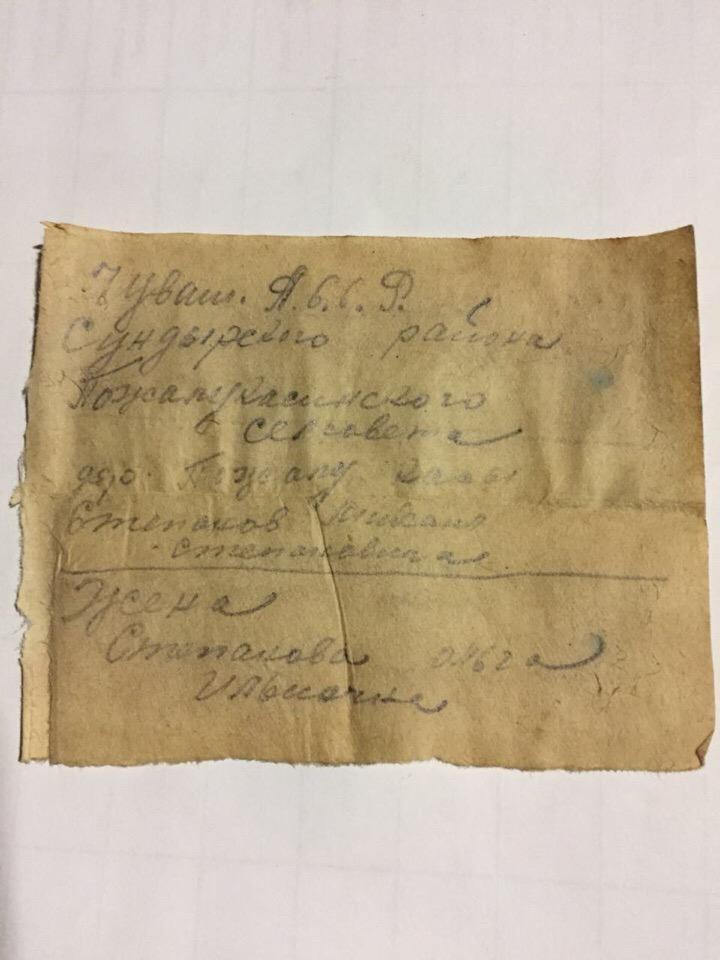 Чуваш. А.С.С.Р.
Сундырского района
Пожанукасинского
сельсовета
дер.
Степанов Михаил
Степановича
Жена
Степанова Ольга
Ильинична